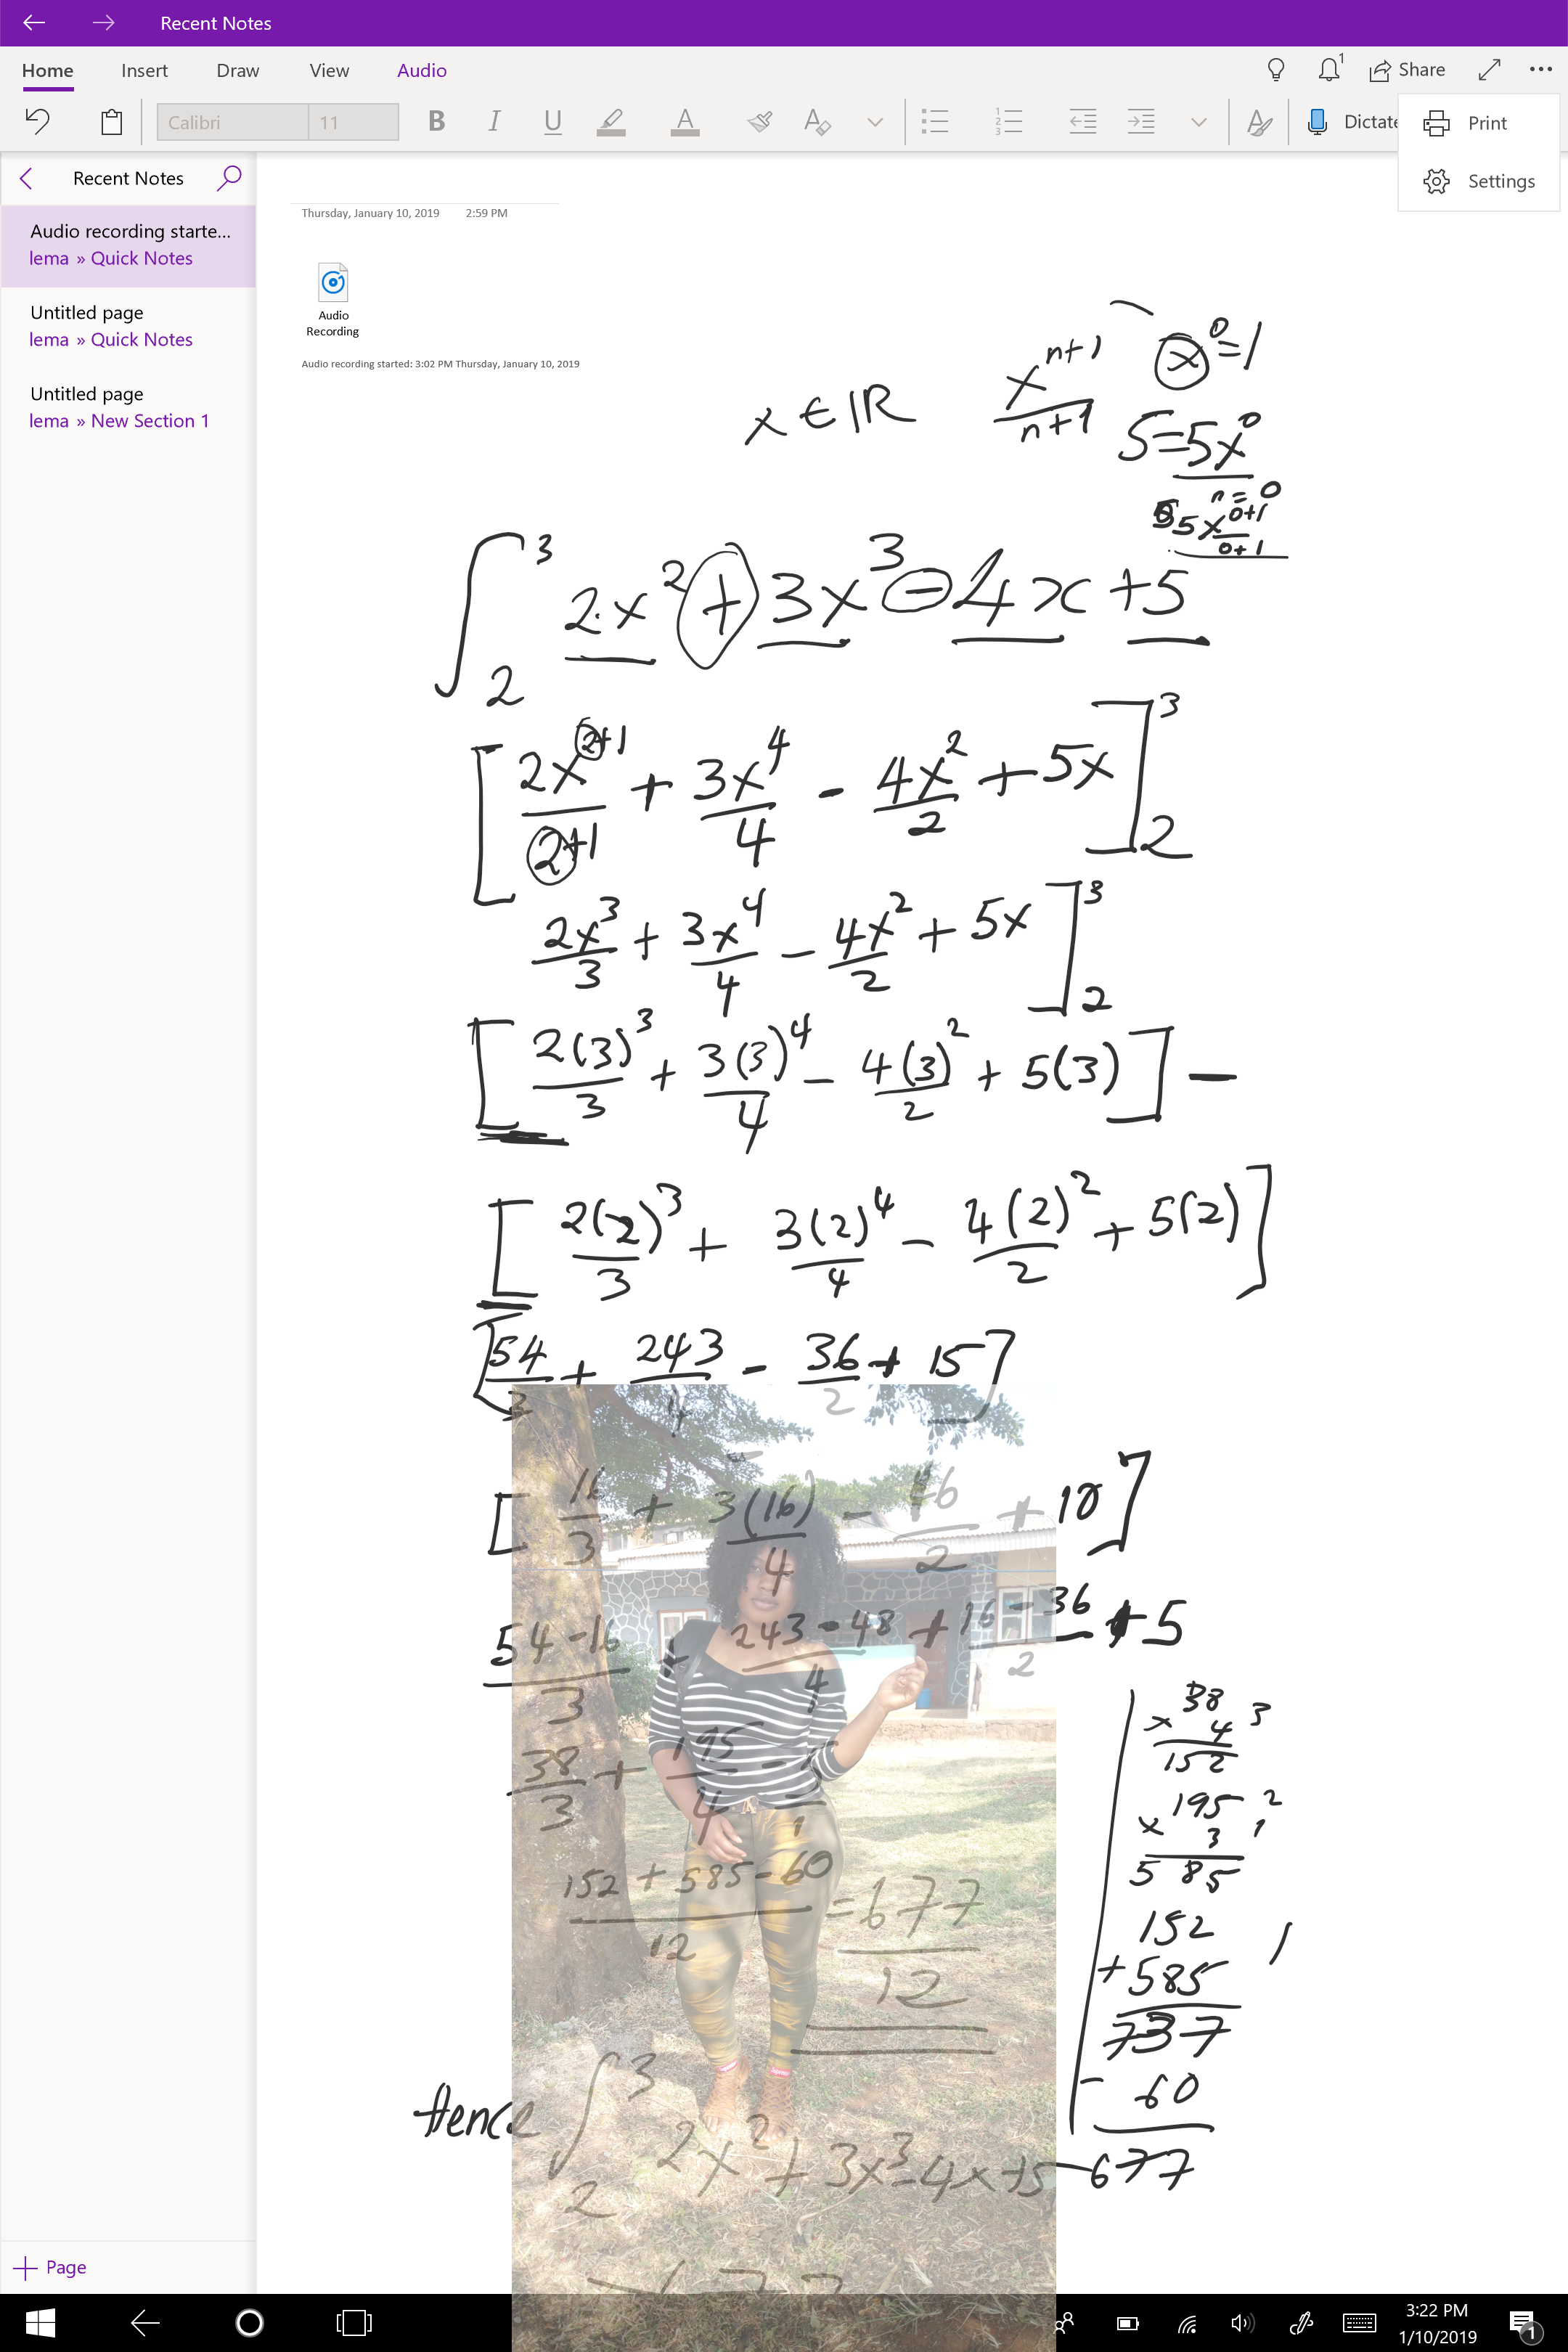 Recent Notes
Home Insert Draw View Audio 1 Share
Calibri 11 B I U A A Dictate
Print
Settings
Recent Notes
Audio recording starte...
lema » Quick Notes
Untitled page
lema » Quick Notes
Untitled page
lema » New Section 1
Page
Thursday, January 10, 2019 2:59 PM
Audio
Recording
Audio recording started: 3:02 PM Thursday, January 10, 2019
x ∈ IR
x^(n+1)
n+1
x^0=1
5=5x^0
n=0
5x^(0+1)
0+1
∫_2^3 2x^2 + 3x^3 - 4x + 5
[2x^(2+1)/(2+1) + 3x^4/4 - 4x^2/2 + 5x]_2^3
2x^3/3 + 3x^4/4 - 4x^2/2 + 5x]_2^3
[2(3)^3/3 + 3(3)^4/4 - 4(3)^2/2 + 5(3)] -
[2(2)^3/3 + 3(2)^4/4 - 4(2)^2/2 + 5(2)]
[54/3 + 243/4 - 36/2 + 15]
[16/3 + 3(16)/4 - 16/2 + 10]
54-16/3 + 243-48/4 + 16-36/2 + 5
38/3 + 195/4 - 5/1
152 + 585 - 60/12 = 677/12
38 3
x 4
152
195 2
x 3 1
585
152
+ 585
737
- 60
677
Hence ∫_2^3 2x^2 + 3x^3 - 4x + 5
3:22 PM
1/10/2019
1